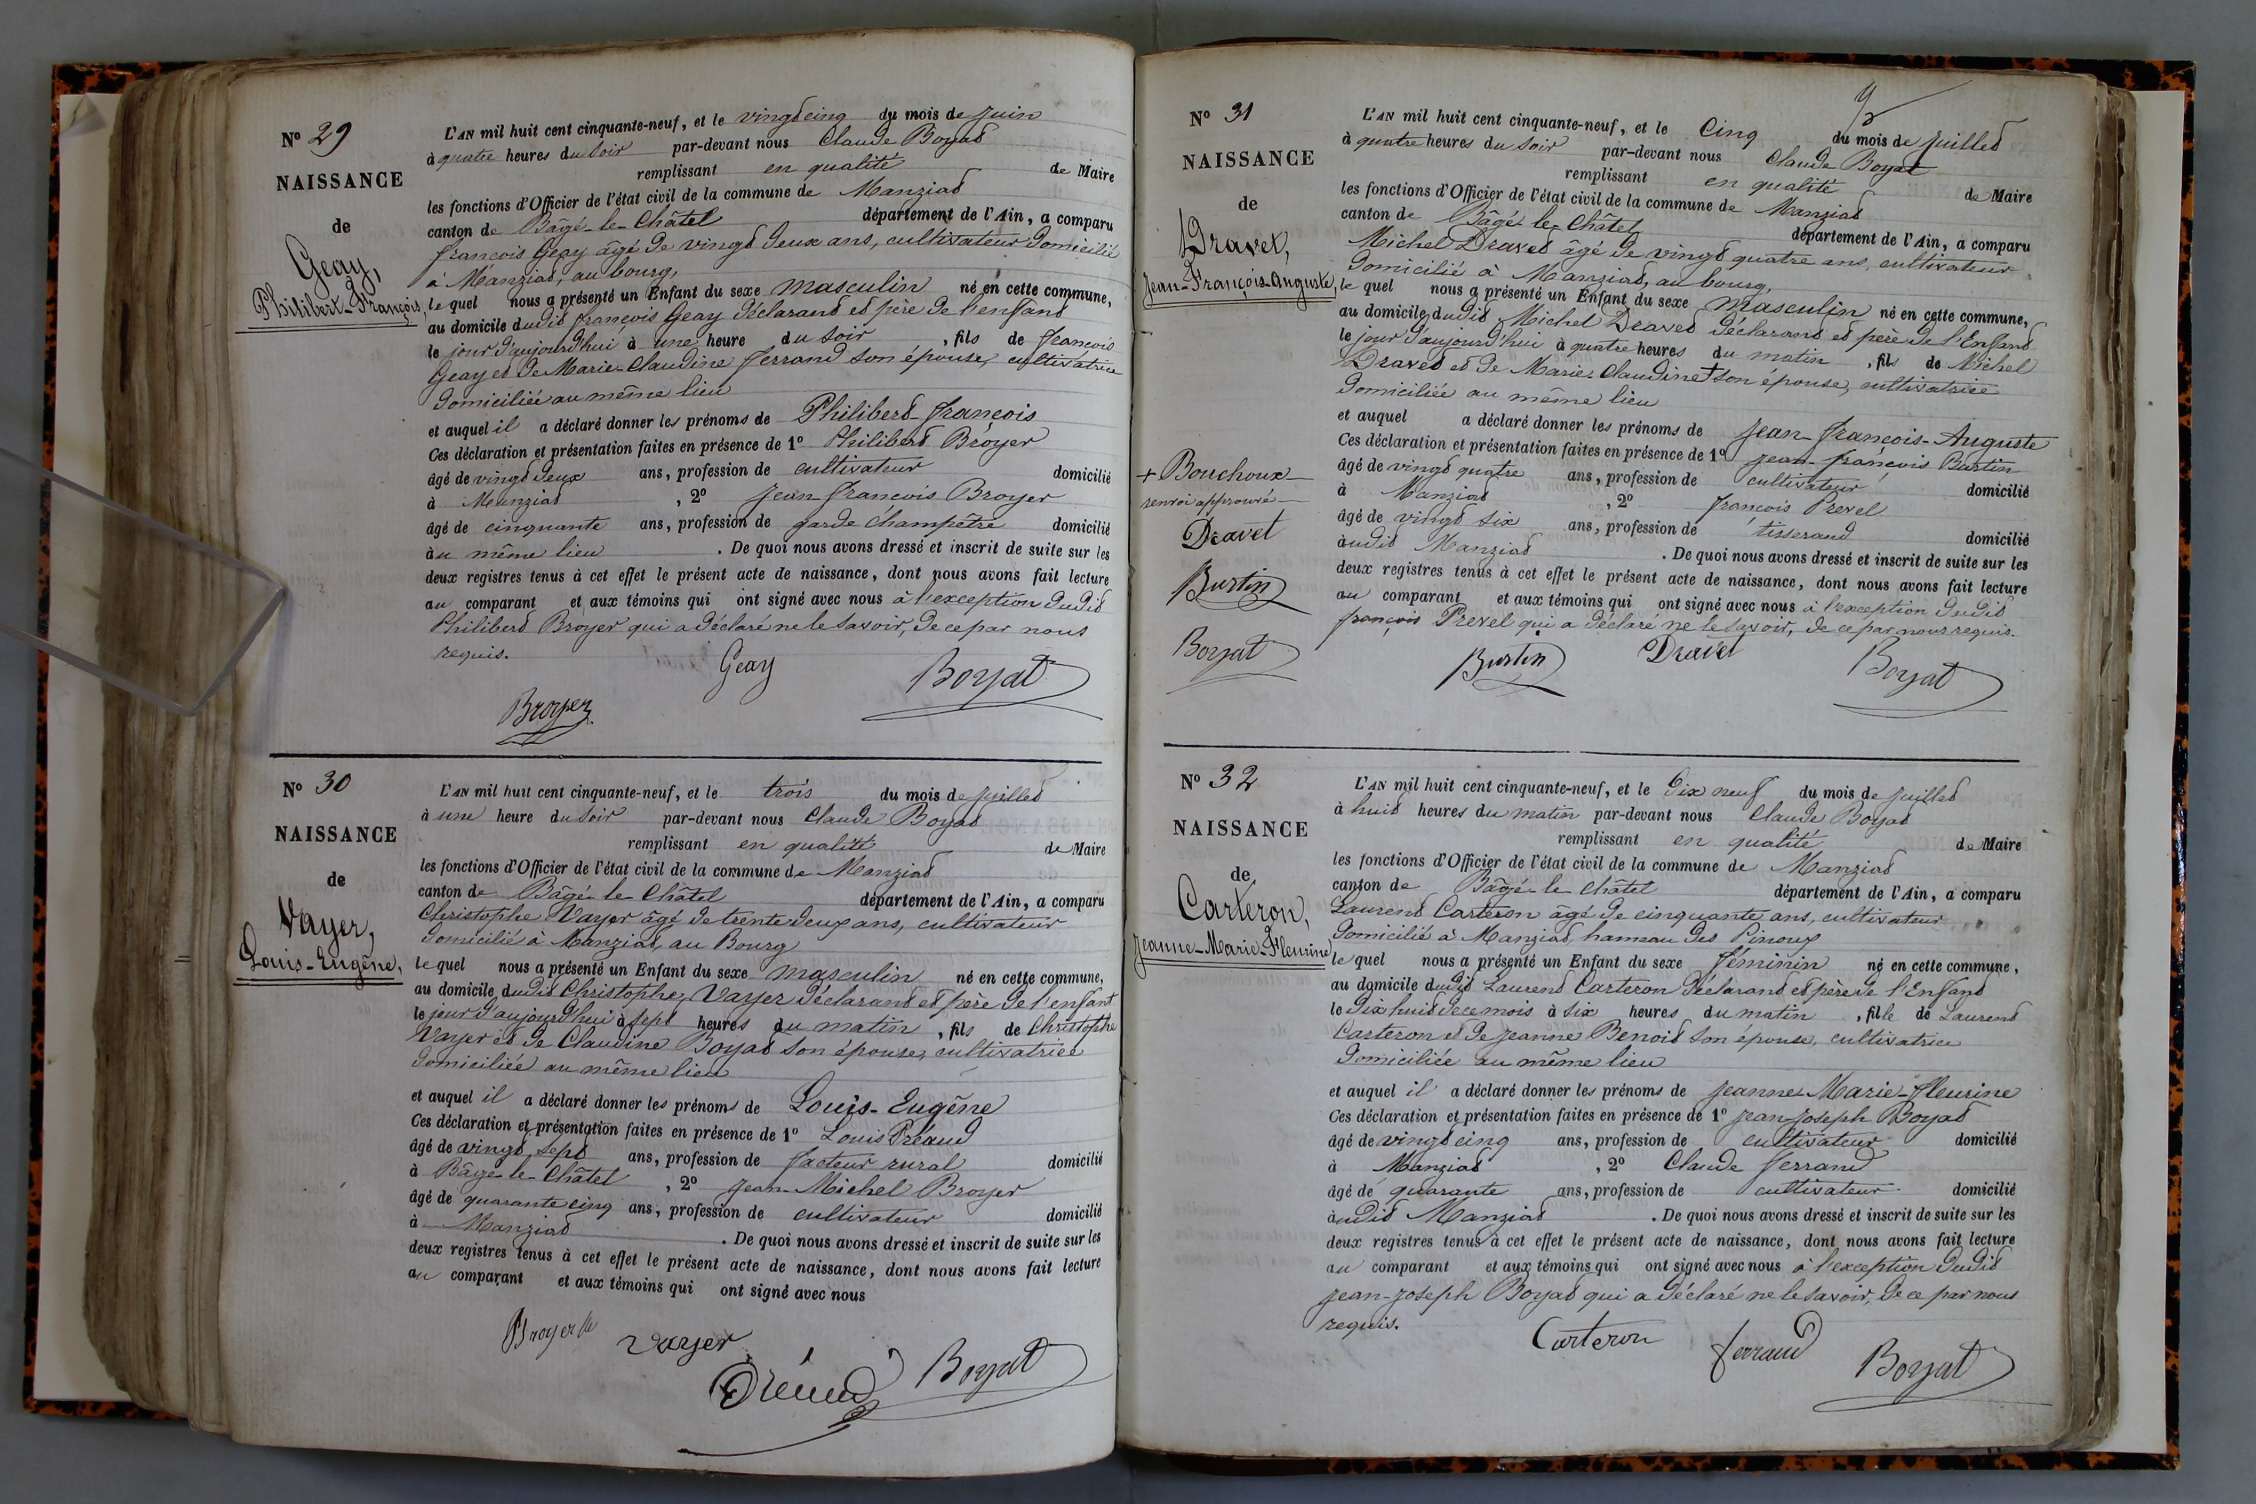 N° 29
NAISSANCE
de
Geay,
Philibert-François,
L'AN mil huit cent cinquante-neuf, et le vingt cinq du mois de juin
à quatre heures du soir par-devant nous Claude Boyat
remplissant en qualité de Maire
les fonctions d'Officier de l'état civil de la commune de Manziat
canton de Bâgé-le-Châtel département de l'Ain, a comparu
françois Geay âgé de vingt deux ans, cultivateur domicilié
à Manziat, au bourg,
le quel nous a présenté un Enfant du sexe masculin né en cette commune,
au domicile dudit françois Geay déclarant et père de l'enfant
le jour d'aujourd'hui à une heure du soir, fils de françois
Geay et de Marie-Claudine ferrand son épouse, cultivatrice
domiciliée au même lieu
et auquel il a déclaré donner les prénoms de Philibert-françois
Ces déclaration et présentation faites en présence de 1° Philibert Broyer
âgé de vingt deux ans, profession de cultivateur domicilié
à Manziat, 2° jean françois Broyer
âgé de cinquante ans, profession de garde champêtre domicilié
au même lieu. De quoi nous avons dressé et inscrit de suite sur les
deux registres tenus à cet effet le présent acte de naissance, dont nous avons fait lecture
au comparant et aux témoins qui ont signé avec nous à l'exception dudit
Philibert Broyer qui a déclaré ne le savoir, de ce par nous
requis.
Geay Boyat
Broyer
N° 30
NAISSANCE
de
Vayer,
Louis-Eugêne,
L'AN mil huit cent cinquante-neuf, et le trois du mois de juillet
à une heure du soir par-devant nous Claude Boyat
remplissant en qualité de Maire
les fonctions d'Officier de l'état civil de la commune de Manziat
canton de Bâgé-le-Châtel département de l'Ain, a comparu
Christophe Vayer âgé de trente deux ans, cultivateur
domicilié à Manziat, au Bourg
le quel nous a présenté un Enfant du sexe masculin né en cette commune,
au domicile dudit Christophe Vayer déclarant et père de l'enfant
le jour d'aujourd'hui à sept heures du matin, fils de Christophe
Vayer et de Claudine Boyat son épouse, cultivatrice
domiciliée au même lieu
et auquel il a déclaré donner les prénoms de Louis-Eugêne
Ces déclaration et présentation faites en présence de 1° Louis Préaud
âgé de vingt sept ans, profession de facteur rural domicilié
à Bâgé-le-Châtel, 2° jean-Michel Broyer
âgé de quarante cinq ans, profession de cultivateur domicilié
à Manziat. De quoi nous avons dressé et inscrit de suite sur les
deux registres tenus à cet effet le présent acte de naissance, dont nous avons fait lecture
au comparant et aux témoins qui ont signé avec nous
Broyer vayer
Boyat
N° 31
NAISSANCE
de
Dravet,
Jean-François-Auguste,
+ Bouchoux
renvoi approuvé
Dravet
Burtin
Boyat
L'AN mil huit cent cinquante-neuf, et le cinq du mois de juillet
à quatre heures du soir par-devant nous Claude Boyat
remplissant en qualité de Maire
les fonctions d'Officier de l'état civil de la commune de Manziat
canton de Bâgé-le-Châtel département de l'Ain, a comparu
Michel Dravet âgé de vingt quatre ans, cultivateur
domicilié à Manziat, au bourg,
le quel nous a présenté un Enfant du sexe masculin né en cette commune,
au domicile dudit Michel Dravet déclarant et père de l'Enfant
le jour d'aujourd'hui à quatre heures du matin, fils de Michel
Dravet et de Marie-Claudine + son épouse, cultivatrice
domiciliée au même lieu
et auquel a déclaré donner les prénoms de jean-françois-Auguste
Ces déclaration et présentation faites en présence de 1° jean-françois Burtin
âgé de vingt quatre ans, profession de cultivateur domicilié
à Manziat, 2° françois Prevel
âgé de vingt six ans, profession de tisserand domicilié
audit Manziat. De quoi nous avons dressé et inscrit de suite sur les
deux registres tenus à cet effet le présent acte de naissance, dont nous avons fait lecture
au comparant et aux témoins qui ont signé avec nous à l'exception dudit
françois Prevel qui a déclaré ne le savoir, de ce par nous requis.
Burtin Dravet Boyat
N° 32
NAISSANCE
de
Carteron,
Jeanne-Marie-Fleurine
L'AN mil huit cent cinquante-neuf, et le dix neuf du mois de juillet
à huit heures du matin par-devant nous Claude Boyat
remplissant en qualité de Maire
les fonctions d'Officier de l'état civil de la commune de Manziat
canton de Bâgé-le-Châtel département de l'Ain, a comparu
Laurent Carteron âgé de cinquante ans, cultivateur
domicilié à Manziat, hameau des Pinoux
le quel nous a présenté un Enfant du sexe féminin né en cette commune,
au domicile dudit Laurent Carteron déclarant et père de l'Enfant
le dix huit de ce mois à six heures du matin, fille de Laurent
Carteron et de jeanne Benoit son épouse, cultivatrice
domiciliée au même lieu
et auquel il a déclaré donner les prénoms de jeanne-Marie-fleurine
Ces déclaration et présentation faites en présence de 1° jean-joseph Boyat
âgé de vingt cinq ans, profession de cultivateur domicilié
à Manziat, 2° Claude ferrand
âgé de quarante ans, profession de cultivateur domicilié
audit Manziat. De quoi nous avons dressé et inscrit de suite sur les
deux registres tenus à cet effet le présent acte de naissance, dont nous avons fait lecture
au comparant et aux témoins qui ont signé avec nous à l'exception dudit
jean-joseph Boyat qui a déclaré ne le savoir, de ce par nous
requis.
Carteron ferrand Boyat